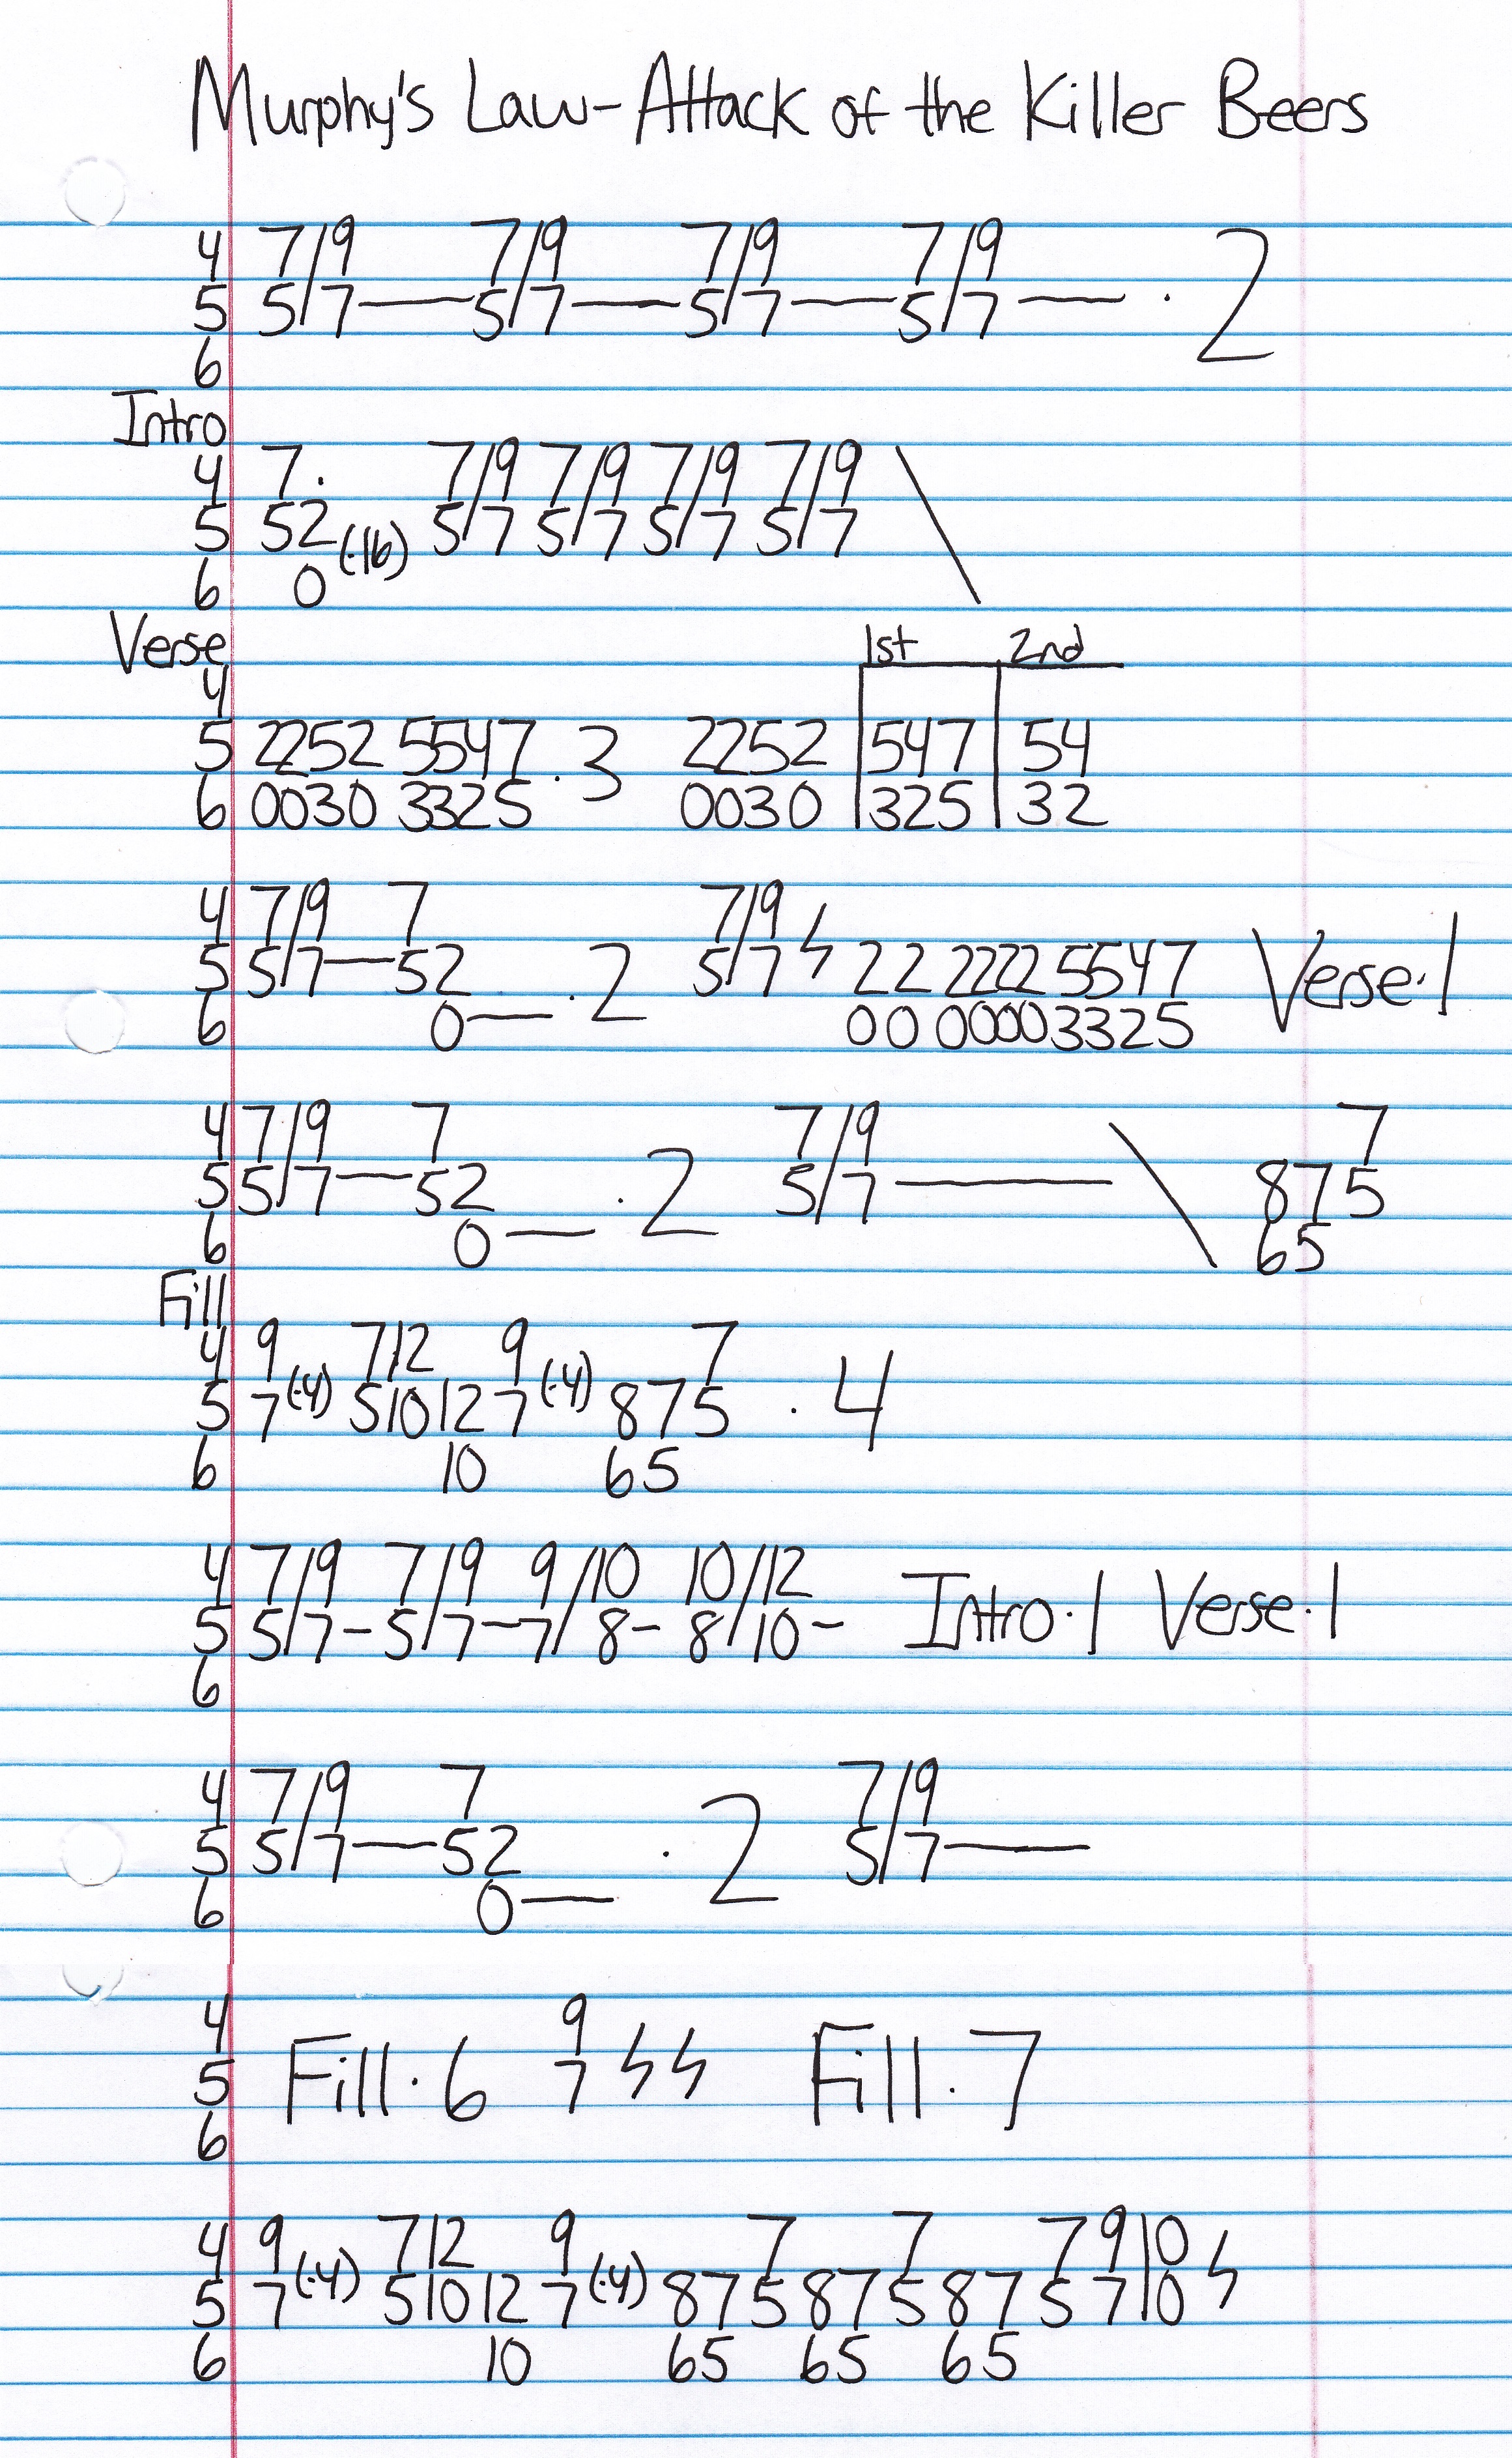 Murphy's Law-Attack of the Killer Beers
4 7/9 7/9 7/9 7/9
5 5/7—5/7—5/7—5/7— · 2
6
Intro
4 7· 7/9 7/9 7/9 7/9 \
5 52 (·16) 5/7 5/7 5/7 5/7
6 0
Verse 1st 2nd
4
5 2252 5547 · 3 2252 547 54
6 0030 3325 0030 325 32
4 7/9 7 7/9
5 5/7—52 · 2 5/7 ϟ 22 2222 5547 Verse·1
6 0— 00 0000 3325
4 7/9 7 7/9 \ 7
5 5/7—52 · 2 5/7— 875
6 0— 65
Fill
4 9 7 12 9 7
5 7 (·4) 5 10 12 7 (·4) 875 · 4
6 10 65
4 7/9 7/9 9/10 10/12
5 5/7-5/7-7/8- 8/10- Intro·1 Verse·1
6
4 7/9 7 7/9
5 5/7—52 · 2 5/7—
6 0—
4 9
5 Fill·6 7 ϟϟ Fill·7
6
4 9 7 12 9 7 7 7 9 |0
5 7 (·4) 5 10 12 7 (·4) 875 875 87 5 7 |0 ϟ
6 10 65 65 65